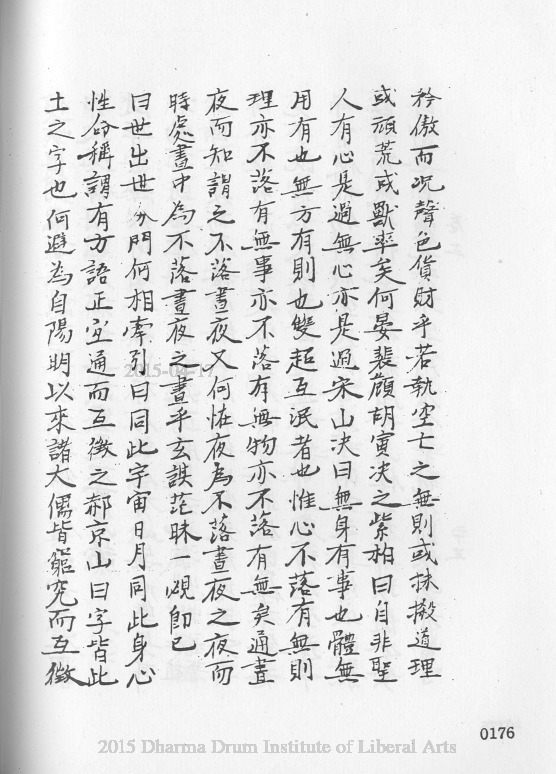 矜傲而况聲色貨財乎若執空亡之無則或抹摋道理
或頑荒或獸率矣何晏裴頠胡寅决之紫柏曰自非聖
人有心是過無心亦是過宋山决曰無身有事也體無
用有也無方有則也雙超互泯者也惟心不落有無則
理亦不落有無事亦不落有無物亦不落有無矣通晝
夜而知謂之不落晝夜又何怪夜為不落晝夜之夜而
時處晝中為不落晝夜之晝乎玄談茫昧一覕卽已
曰世出世分門何相牽引曰同此宇宙日月同此身心
性命稱謂有方語正宜通而互徵之郝京山曰字皆此
土之字也何避為自陽明以來諸大儒皆窮究而互徵
0176
2015-04-17
2015 Dharma Drum Institute of Liberal Arts